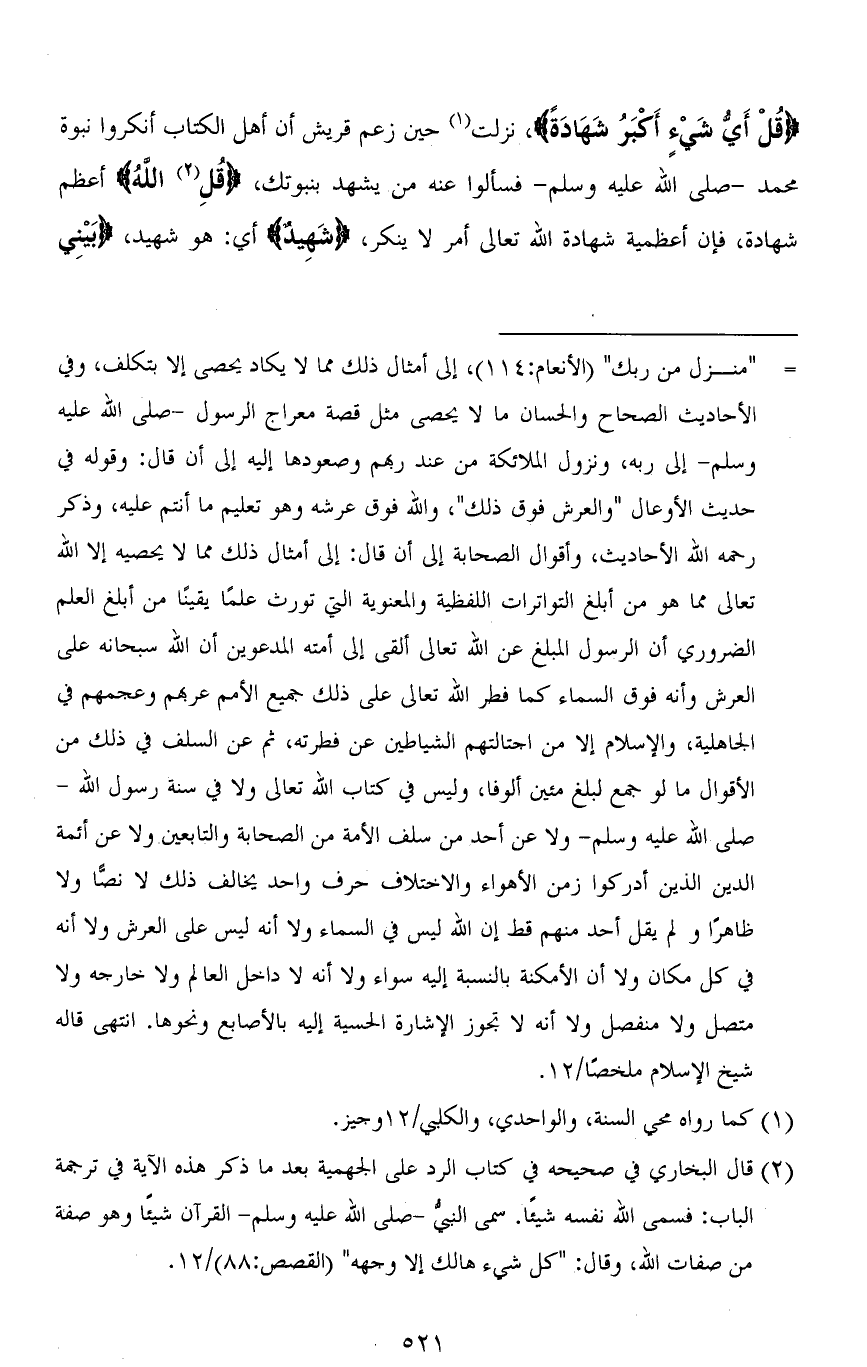 ﴿قُلْ أَيُّ شَيْءٍ أَكْبَرُ شَهَادَةً﴾، نزلت(١) حين زعم قريش أن أهل الكتاب أنكروا نبوة
محمد -صلى الله عليه وسلم- فسألوا عنه من يشهد بنبوتك، ﴿قُلِ(٢) اللَّهُ﴾ أعظم
شهادة، فإن أعظمية شهادة الله تعالى أمر لا ينكر، ﴿شَهِيدٌ﴾ أي: هو شهيد، ﴿بَيْنِي
= "منـــزل من ربك" (الأنعام:١١٤)، إلى أمثال ذلك مما لا يكاد يحصى إلا بتكلف، وفي
الأحاديث الصحاح والحسان ما لا يحصى مثل قصة معراج الرسول -صلى الله عليه
وسلم- إلى ربه، ونزول الملائكة من عند ربهم وصعودها إليه إلى أن قال: وقوله في
حديث الأوعال "والعرش فوق ذلك"، والله فوق عرشه وهو تعليم ما أنتم عليه، وذكر
رحمه الله الأحاديث، وأقوال الصحابة إلى أن قال: إلى أمثال ذلك مما لا يحصيه إلا الله
تعالى مما هو من أبلغ التواترات اللفظية والمعنوية التي تورث علمًا يقينًا من أبلغ العلم
الضروري أن الرسول المبلغ عن الله تعالى ألقى إلى أمته المدعوين أن الله سبحانه على
العرش وأنه فوق السماء كما فطر الله تعالى على ذلك جميع الأمم عربهم وعجمهم في
الجاهلية، والإسلام إلا من احتالتهم الشياطين عن فطرته، ثم عن السلف في ذلك من
الأقوال ما لو جمع لبلغ مئين ألوفا، وليس في كتاب الله تعالى ولا في سنة رسول الله -
صلى الله عليه وسلم- ولا عن أحد من سلف الأمة من الصحابة والتابعين ولا عن أئمة
الدين الذين أدركوا زمن الأهواء والاختلاف حرف واحد يخالف ذلك لا نصًّا ولا
ظاهرًا و لم يقل أحد منهم قط إن الله ليس في السماء ولا أنه ليس على العرش ولا أنه
في كل مكان ولا أن الأمكنة بالنسبة إليه سواء ولا أنه لا داخل العالم ولا خارجه ولا
متصل ولا منفصل ولا أنه لا تجوز الإشارة الحسية إليه بالأصابع ونحوها. انتهى قاله
شيخ الإسلام ملخصًا/١٢.
(١) كما رواه محي السنة، والواحدي، والكلبي/١٢وجيز.
(٢) قال البخاري في صحيحه في كتاب الرد على الجهمية بعد ما ذكر هذه الآية في ترجمة
الباب: فسمى الله نفسه شيئًا. سمى النبيُّ -صلى الله عليه وسلم- القرآن شيئًا وهو صفة
من صفات الله، وقال: "كل شيء هالك إلا وجهه" (القصص:٨٨)/١٢.
٥٢١